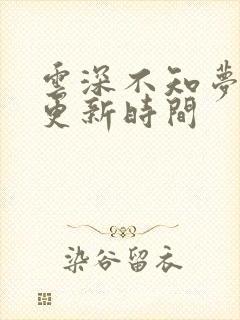 雲深不知夢
更新時間
染谷留衣